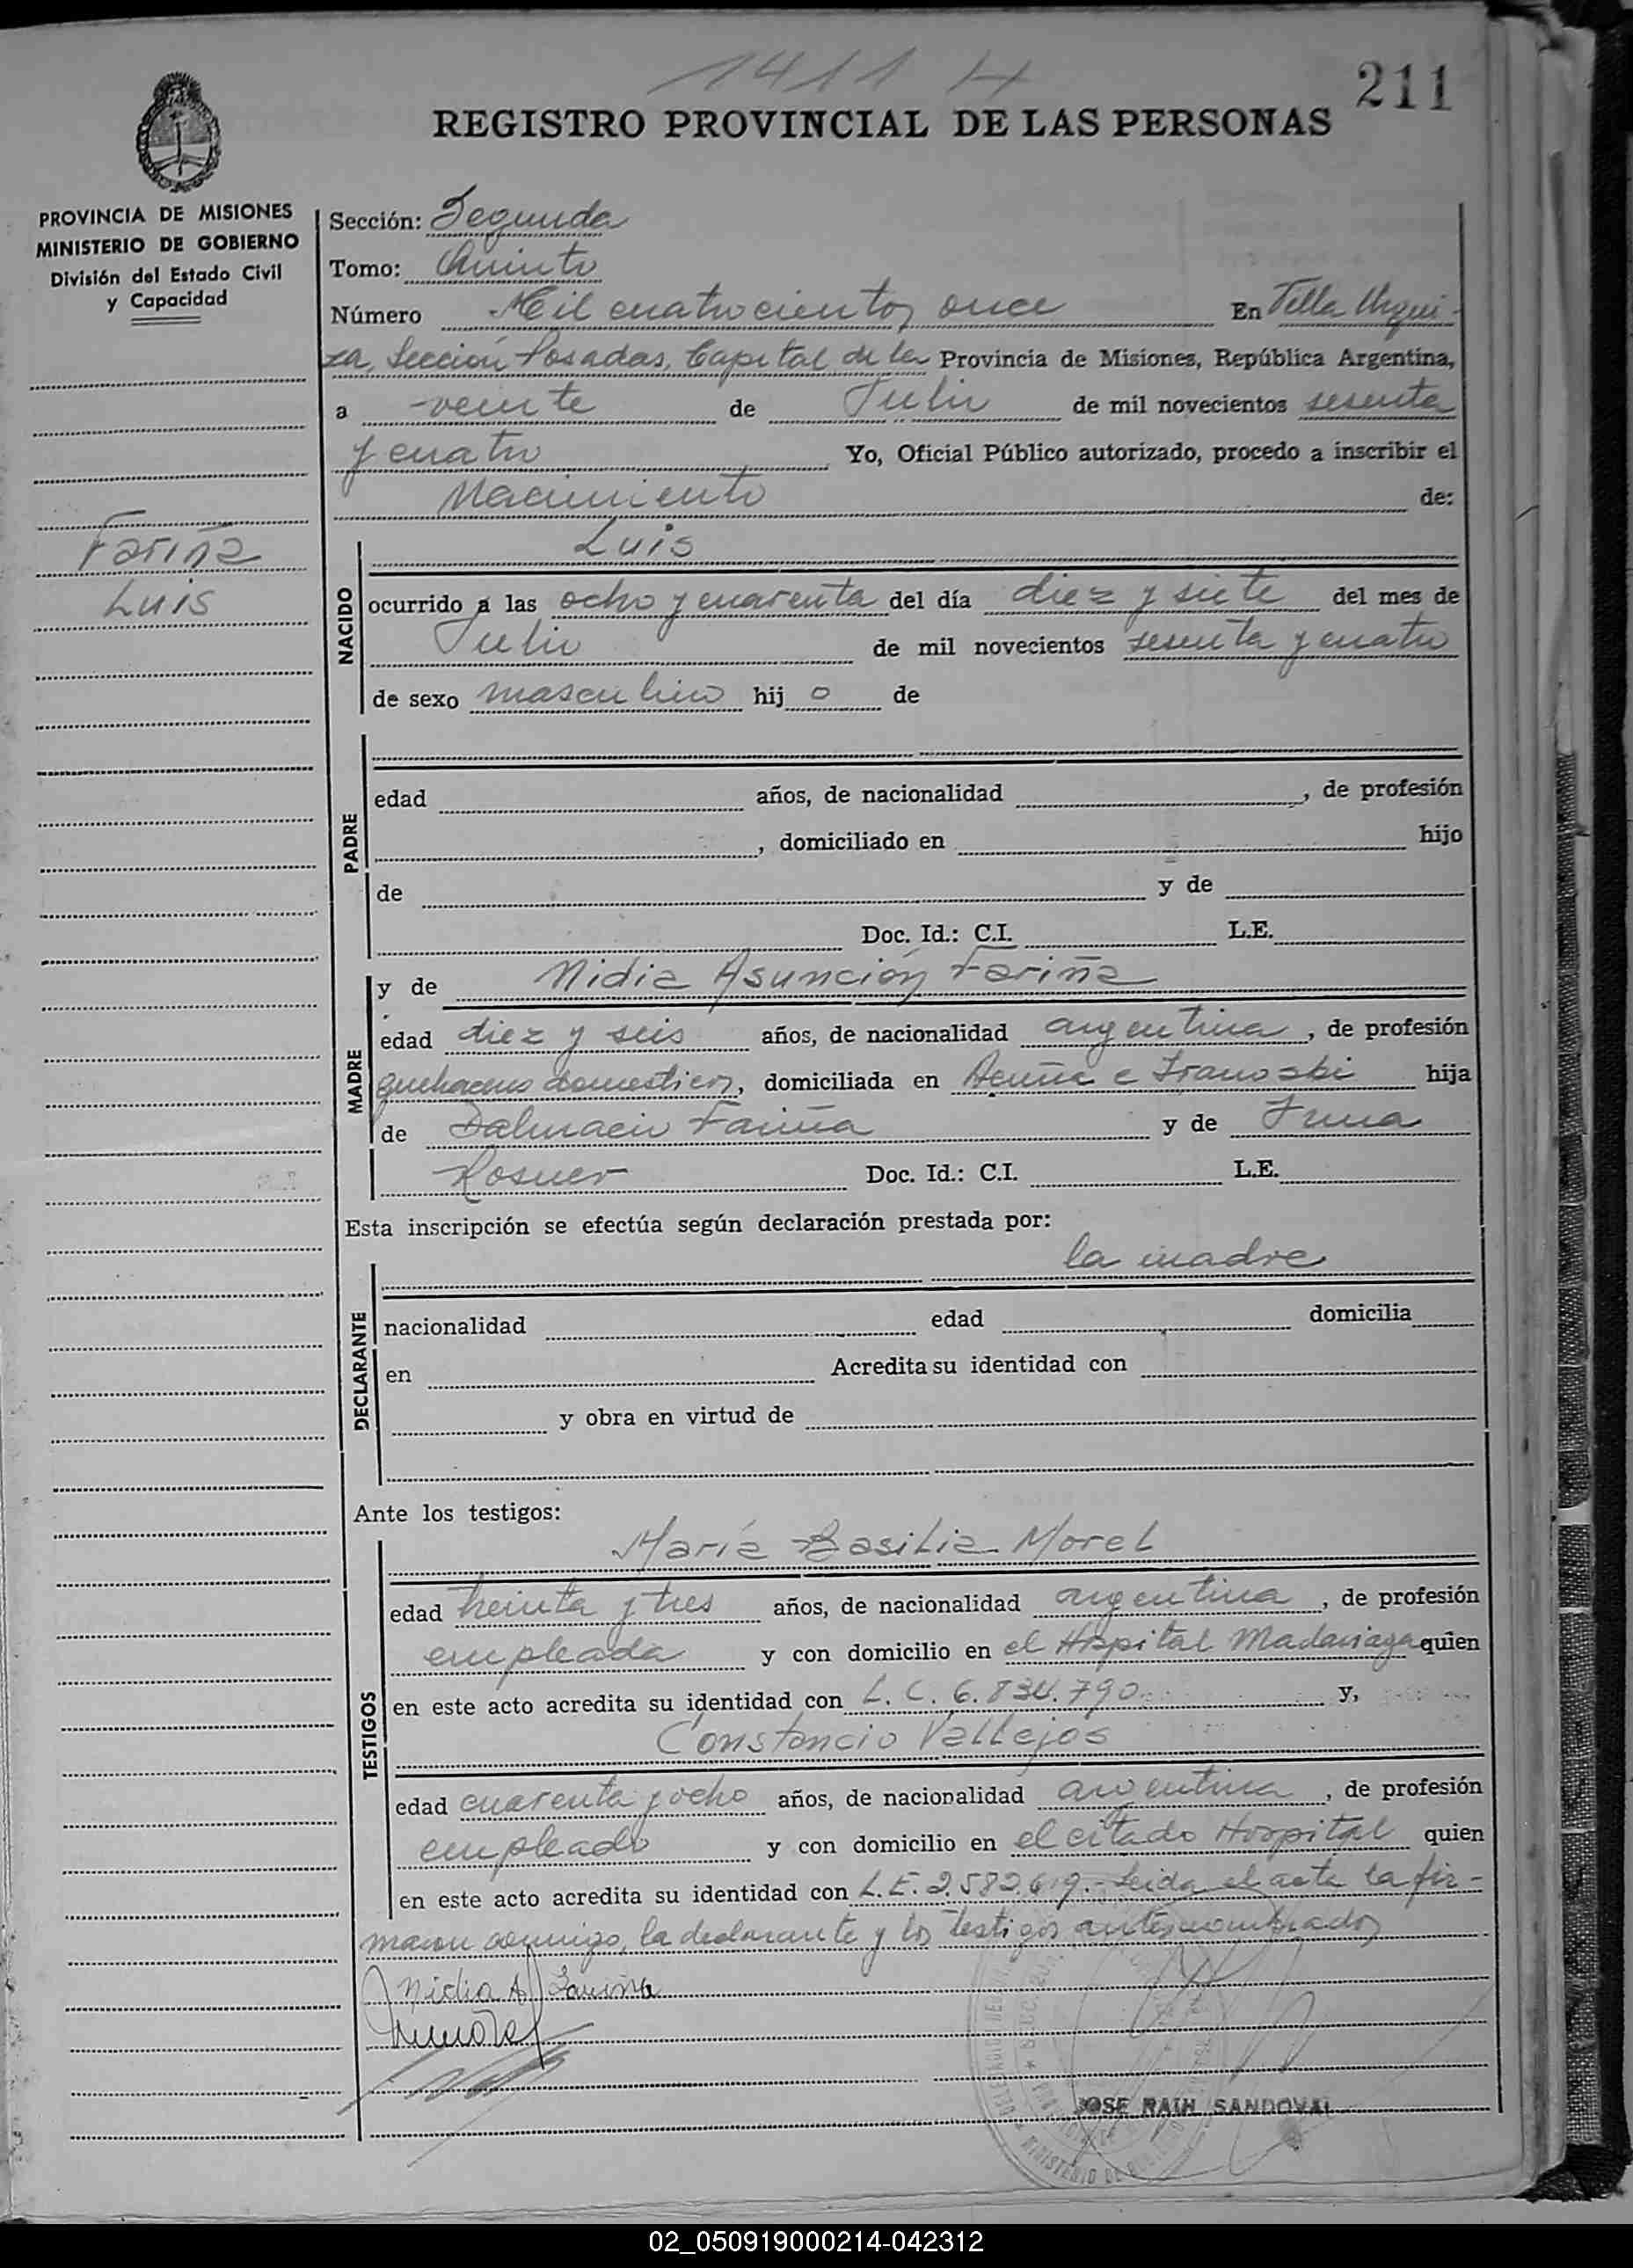 1411 H
211
REGISTRO PROVINCIAL DE LAS PERSONAS
PROVINCIA DE MISIONES
MINISTERIO DE GOBIERNO
División del Estado Civil
y Capacidad
Sección: Segunda
Tomo: Quinto
Número Mil cuatrocientos once En Villa Urqui-
za, Sección Posadas, Capital de la Provincia de Misiones, República Argentina,
a veinte de Julio de mil novecientos sesenta
y cuatro Yo, Oficial Público autorizado, procedo a inscribir el
Nacimiento de:
Fariña
Luis
NACIDO
Luis
ocurrido a las ocho y cuarenta del día diez y siete del mes de
Julio de mil novecientos sesenta y cuatro
de sexo masculino hij o de
PADRE
edad años, de nacionalidad , de profesión
, domiciliado en hijo
de y de
Doc. Id.: C.I. L.E.
MADRE
y de Nidia Asunción Fariña
edad diez y seis años, de nacionalidad argentina, de profesión
quehaceres domesticos, domiciliada en Acuña e hija
de Dalmacio Fariña y de Irma
Rosner Doc. Id.: C.I. L.E.
Esta inscripción se efectúa según declaración prestada por:
DECLARANTE
la madre
nacionalidad edad domicilia
en Acredita su identidad con
y obra en virtud de
Ante los testigos:
TESTIGOS
María Basilia Morel
edad treinta y tres años, de nacionalidad argentina, de profesión
empleada y con domicilio en el Hospital Madariaga quien
en este acto acredita su identidad con L.C. 6.834.790 y,
Constancio Vallejos
edad cuarenta y ocho años, de nacionalidad argentina, de profesión
empleado y con domicilio en el citado Hospital quien
en este acto acredita su identidad con L.E. 2.582.619.- Leida el acta la fir-
maron conmigo, la declarante y los testigos antes nombrados
Nidia A Fariña
JOSE RAUL SANDOVAL
02_050919000214-042312